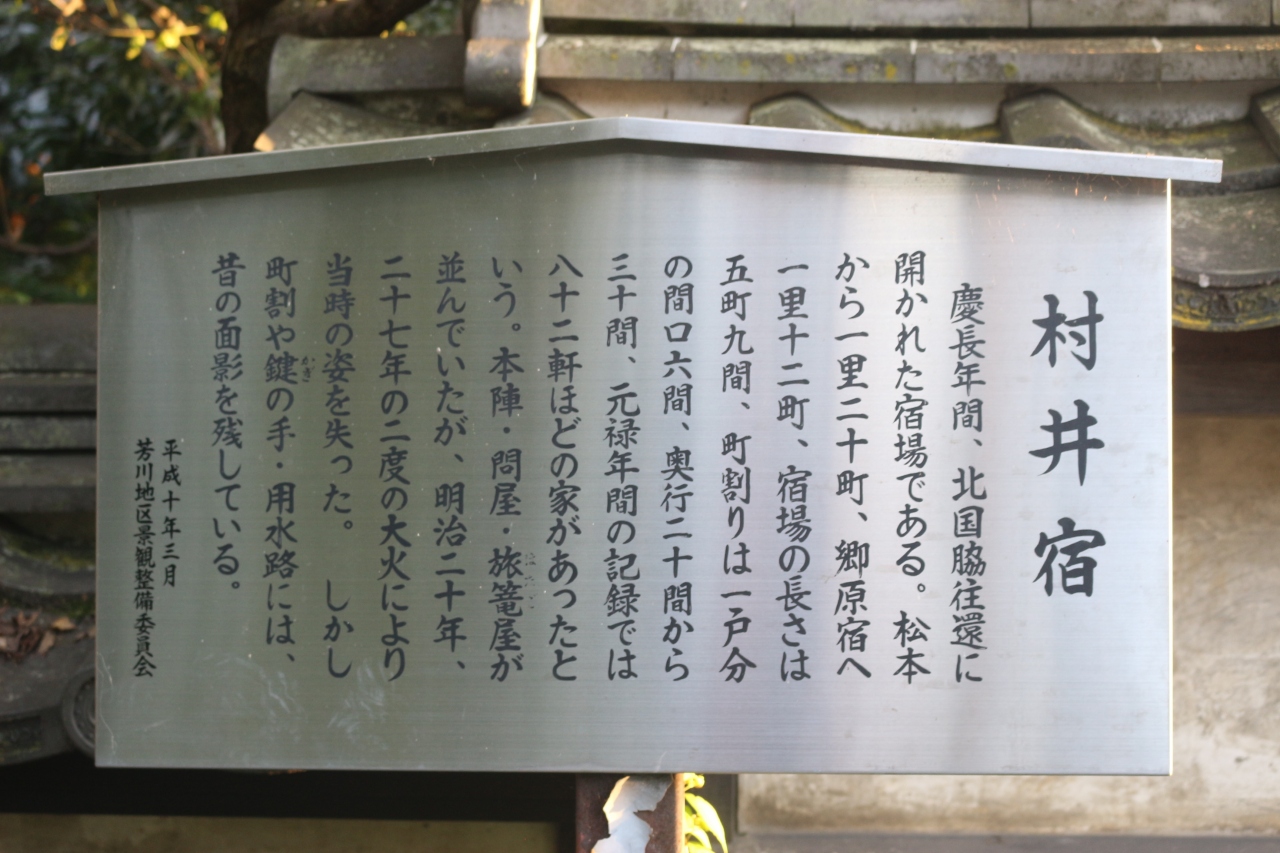 村井宿
慶長年間、北国脇往還に
開かれた宿場である。松本
から一里二十町、郷原宿へ
一里十二町、宿場の長さは
五町九間、町割りは一戸分
の間口六間、奥行二十間から
三十間、元禄年間の記録では
八十二軒ほどの家があったと
いう。本陣・問屋・旅篭屋が
並んでいたが、明治二十年、
二十七年の二度の大火により
当時の姿を失った。 しかし
町割や鍵の手・用水路には、
かぎ
昔の面影を残している。
平成十年三月
芳川地区景観整備委員会